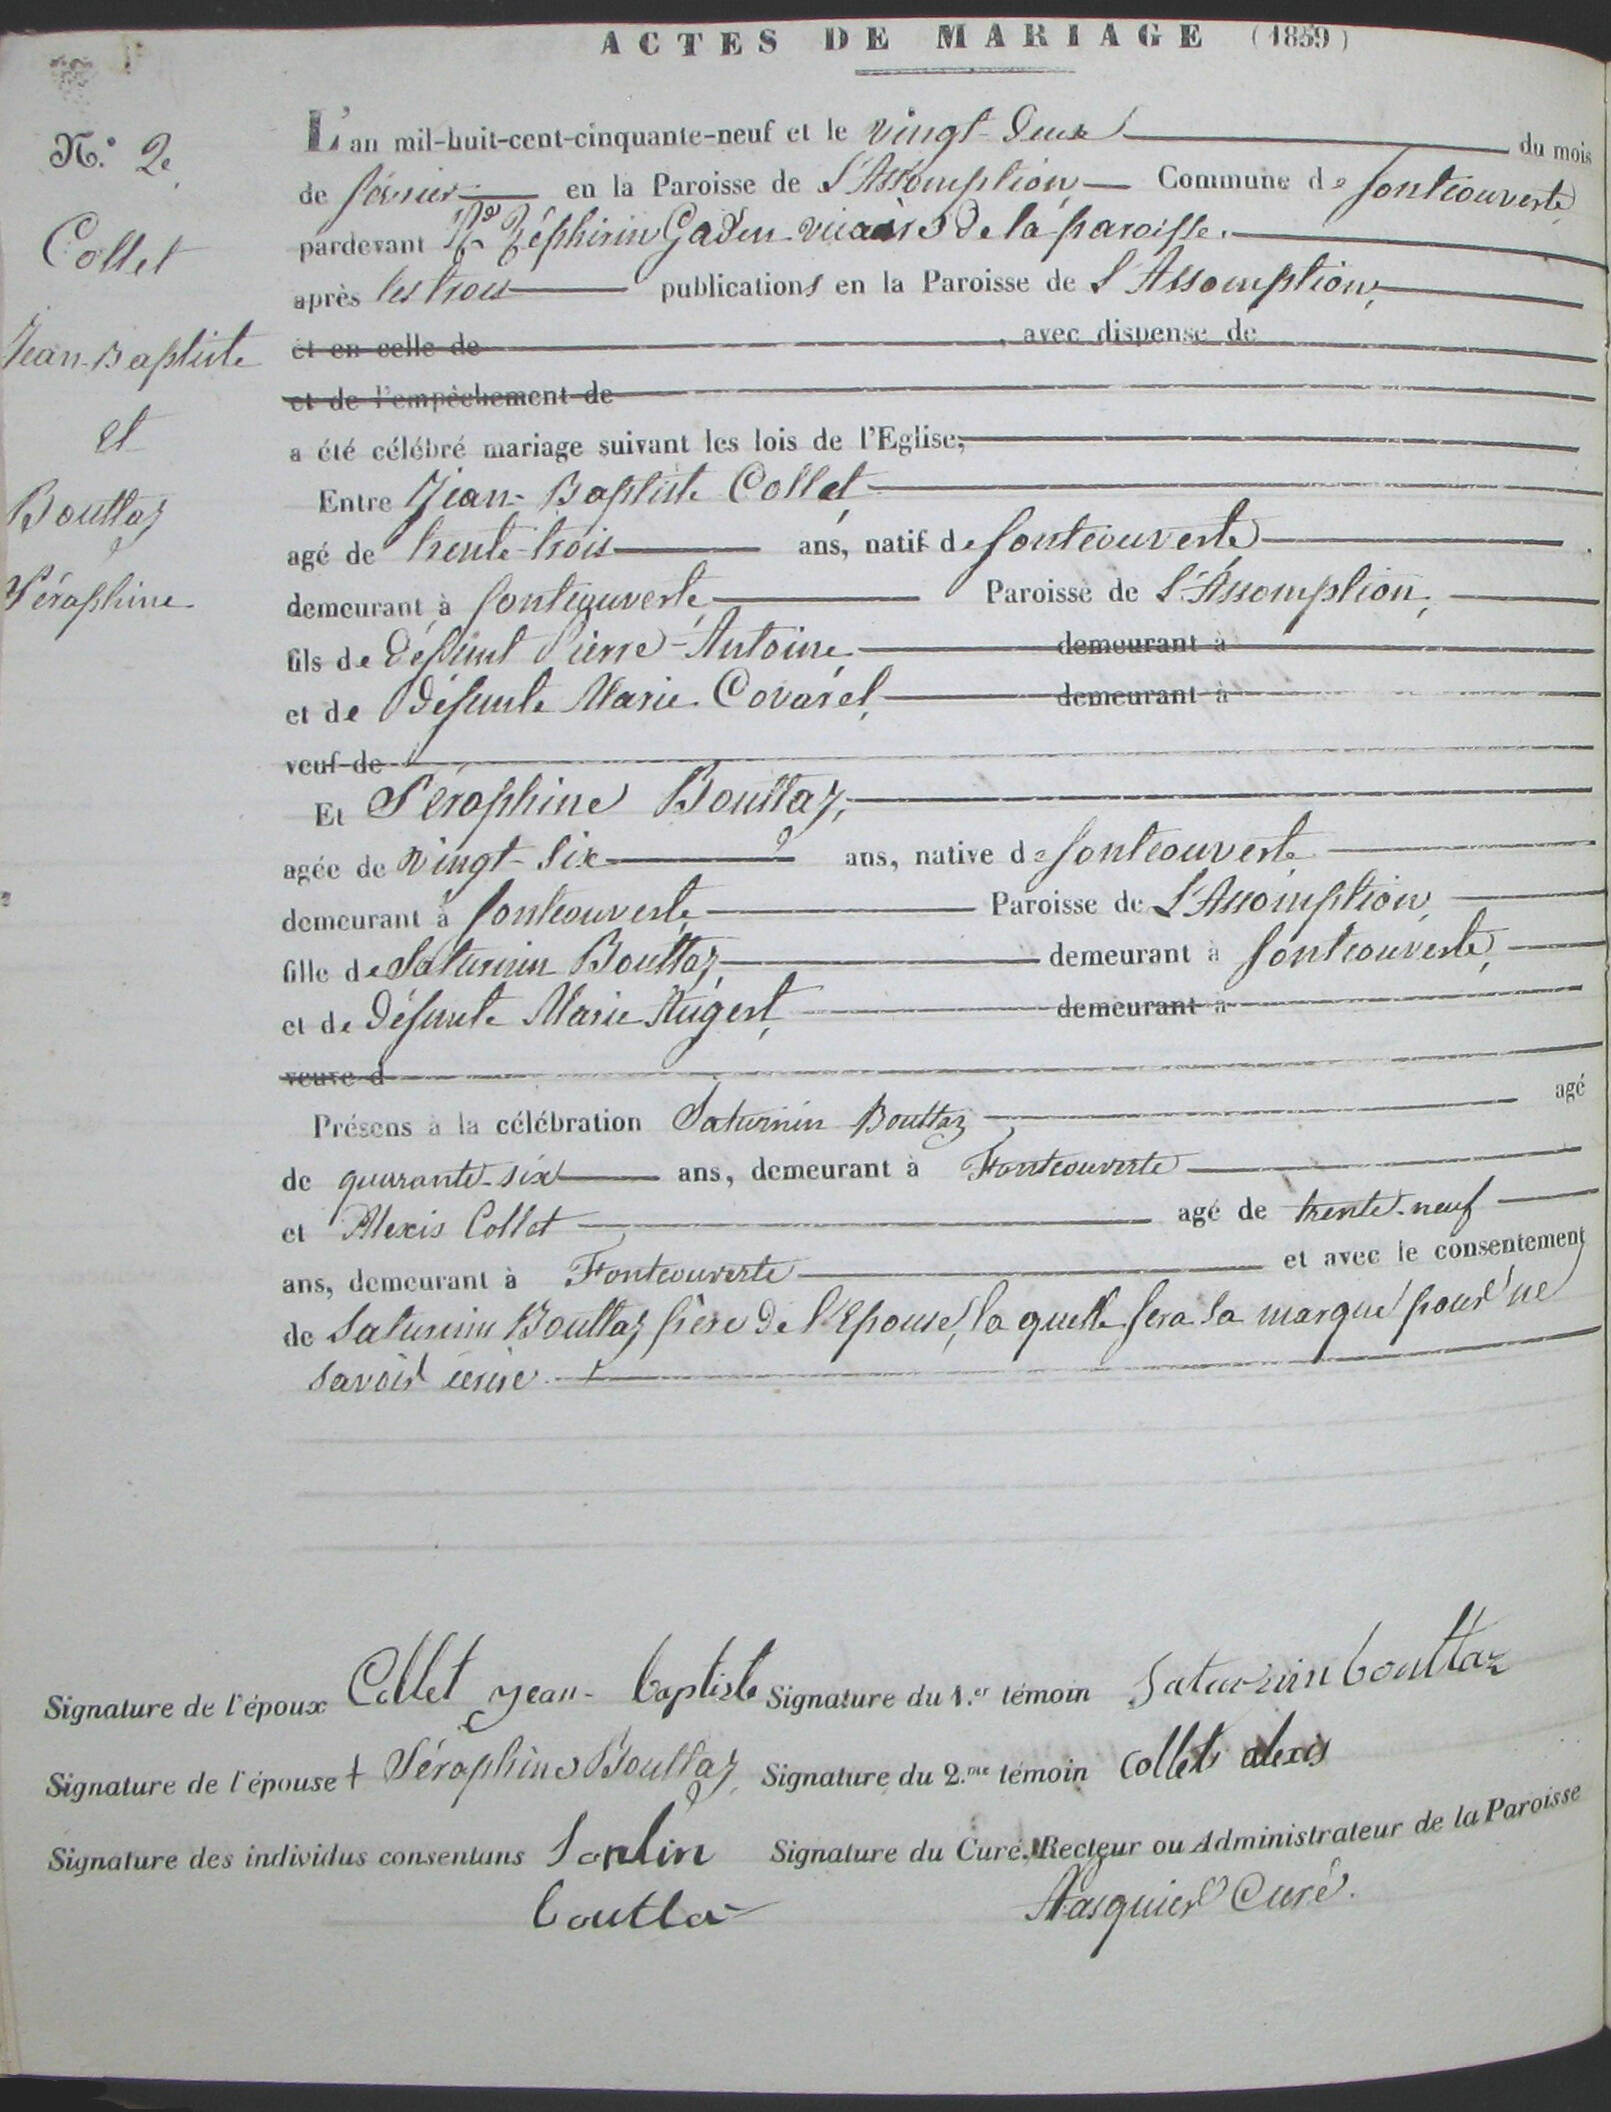 ACTES DE MARIAGE (1859)
N.° 2e
Collet
Jean-Baptiste
et
Bouttaz
Séraphine
L'an mil-huit-cent-cinquante-neuf et le vingt-deux du mois
de février en la Paroisse de L'Assomption Commune de fontcouverte
pardevant Rd Zéphirin Gaden vicaire de la paroisse.
après les trois publications en la Paroisse de L'Assomption,
et en celle de , avec dispense de
et de l'empêchement de
a été célébré mariage suivant les lois de l'Eglise,
Entre Jean-Baptiste Collet,
agé de trente-trois ans, natif de fontcouverte
demeurant à fontcouverte, Paroisse de L'Assomption,
fils de défunt Pierre-Antoine demeurant à
et de Défunte Marie Covarel, demeurant à
veuf de
Et Séraphine Bouttaz,
agée de vingt-six ans, native de fontcouverte
demeurant à fontcouverte, Paroisse de L'Assomption,
fille de Saturnin Bouttaz, demeurant à fontcouverte,
et de défunte Marie Augert, demeurant à
veuve d
Présens à la célébration Saturnin Bouttaz agé
de quarrante-six ans, demeurant à Fontcouverte
et Alexis Collet agé de trente-neuf
ans, demeurant à Fontcouverte et avec le consentement
de Saturnin Bouttaz père de l'Epouse, la quelle fera sa marque pour ne
savoir écrire.
Signature de l'époux Collet jean-baptiste Signature du 1.er témoin Saturnin bouttaz
Signature de l'épouse + Séraphine Bouttaz, Signature du 2.me témoin Collet alexis
Signature des individus consentans Signature du Curé, Recteur ou Administrateur de la Paroisse
Curé.